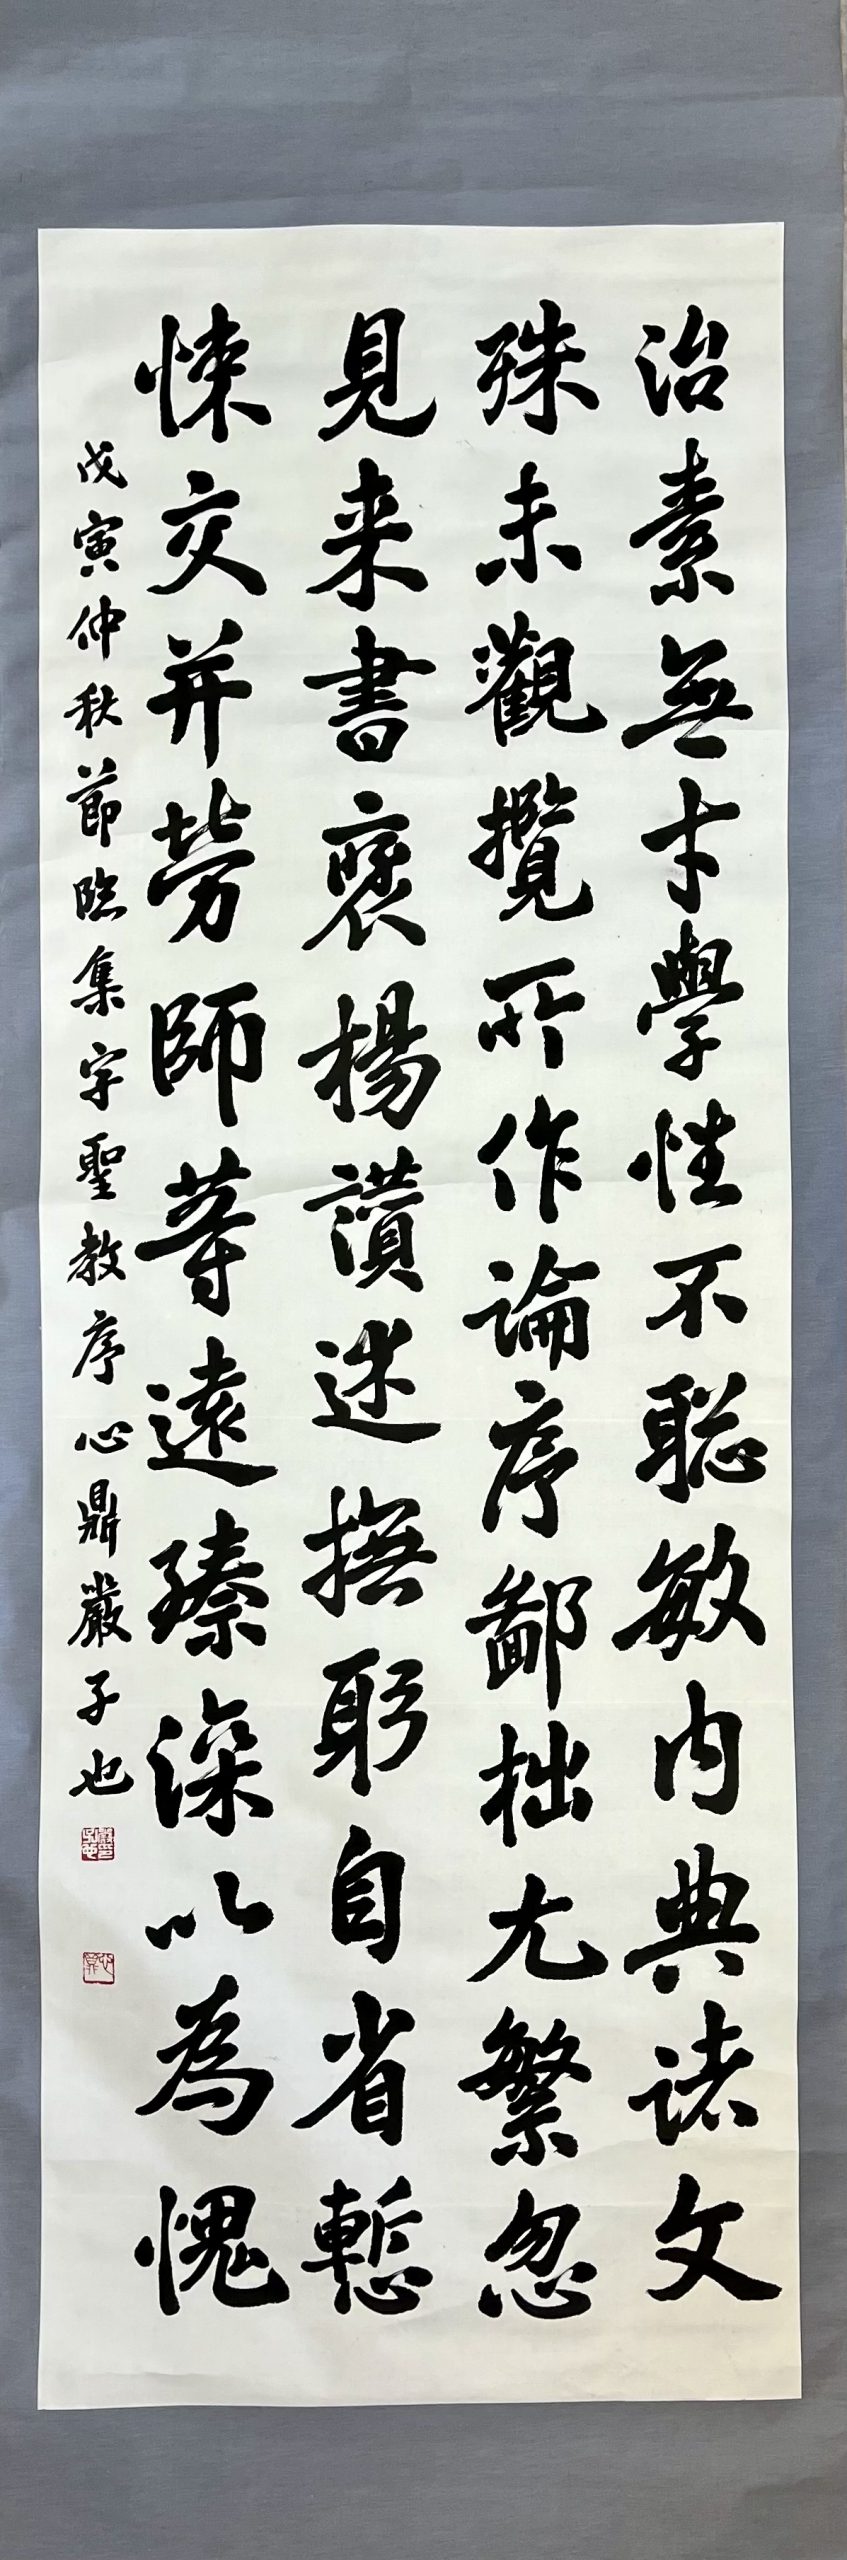 治素無才學性不聡敏內典諸文
殊未觀攬所作論序鄙拙尤繁忽
見来書褒楊讃述撫躬自省慙
悚交并勞師等遠臻深以為愧
戊寅仲秋節臨集字聖教序心鼎嚴子也